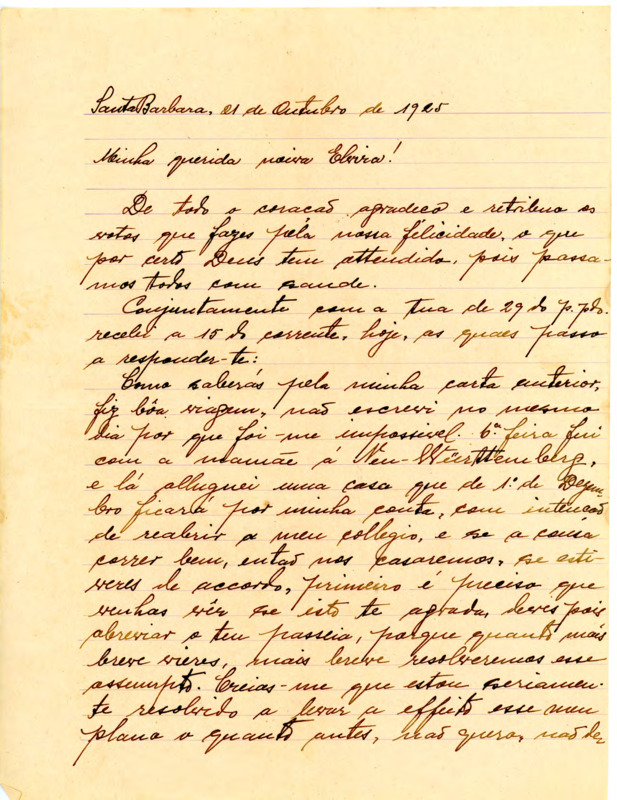 Santa Barbara, 21 de Outubro de 1925
Minha querida noiva Elvira!
De todo o coracaõ agradeco e retribuo os
votos que fazes pela nossa felicidade, o que
por certo Deus tem attendido, pois passa-
mos todos com saude.
Conjuntamente com a tua de 29 do p.pdo.
recebi a 15 do corrente, hoje, as quaes passo
a responder-te:
Como saberás pela minha carta anterior,
fiz bôa viagem, naõ escrevi no mesmo
dia por que foi-me impossivel. 6ª feira fui
com a mamãe á Neu-Württemberg,
e lá alluguei uma casa que de 1º de Dezem
bro ficará por minha conta, com intencaõ
de reabrir a meu collegio, e se a cousa
correr bem, entaõ nos casaremos, se esti-
veres de accordo, primeiro é preciso que
venhas vêr se isto te agrada, deves pois
abreviar o teu passeia, porque quanto mais
breve vieres, mais breve resolveremos esse
assumpto. Creias-me que estou seriamen-
te resolvido a levar a effeito esse meu
plano o quanto antes, naõ quero, naõ dez